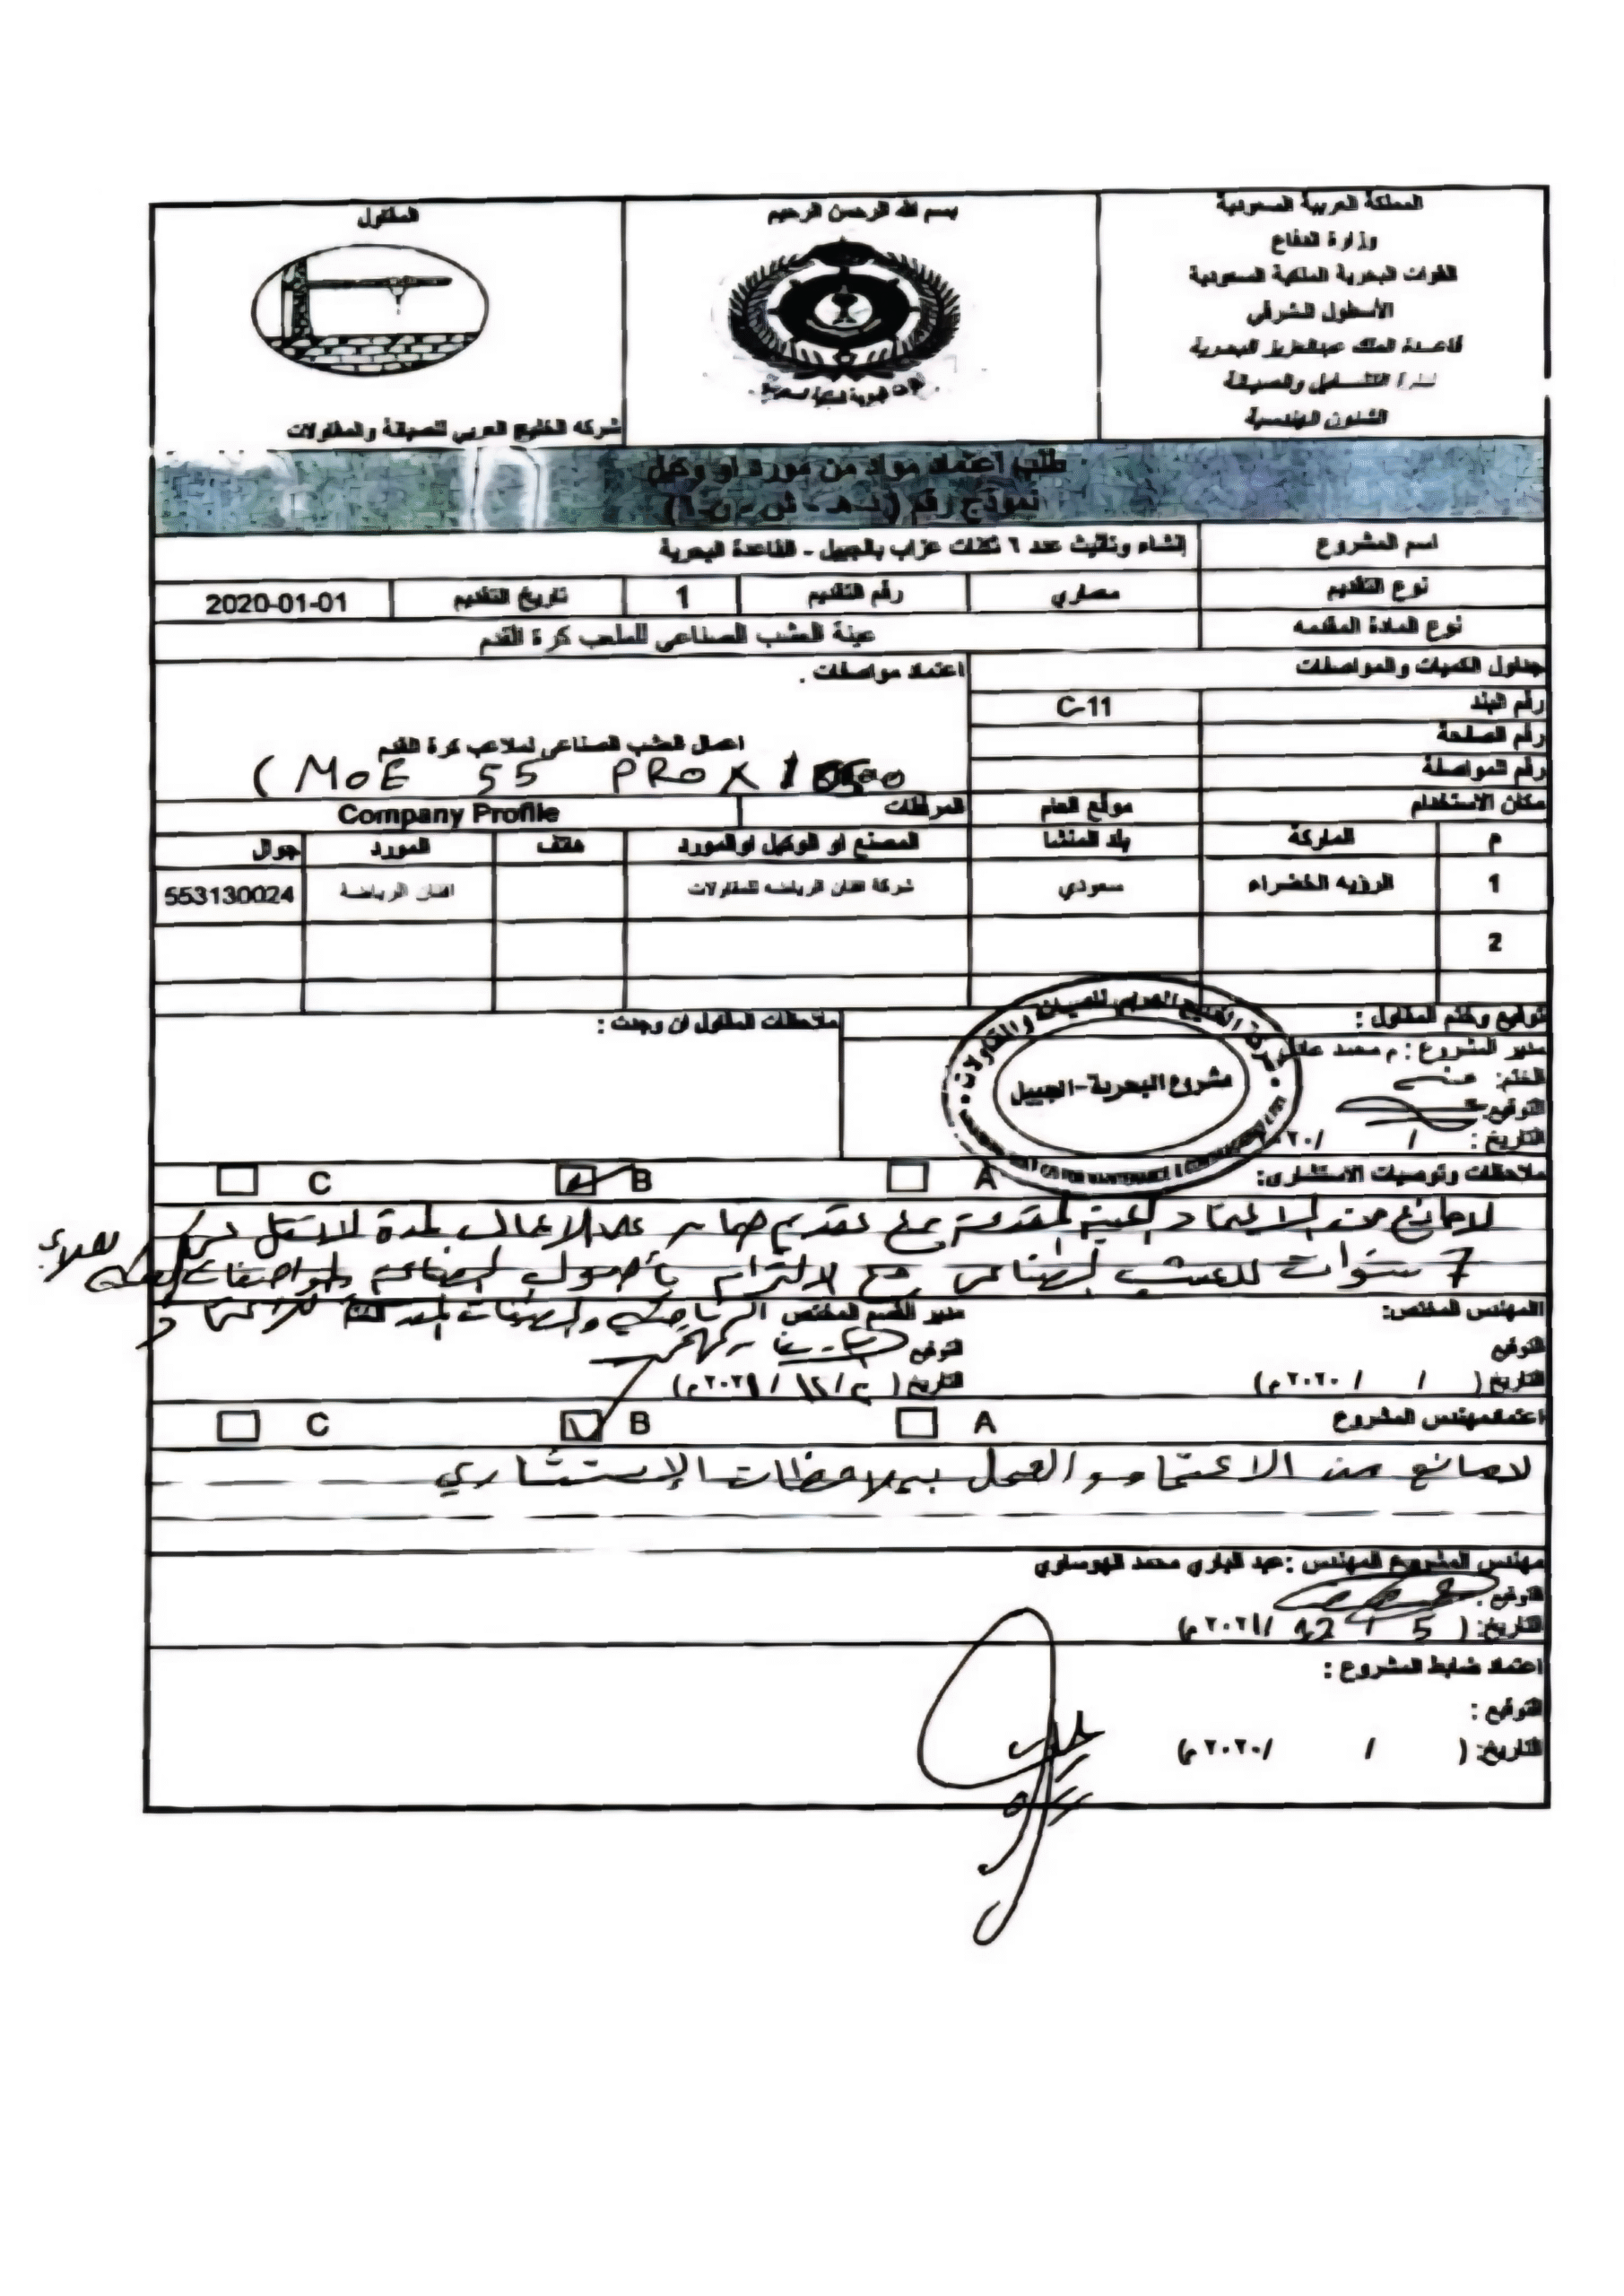 المملكة العربية السعودية
وزارة الدفاع
القوات البحرية الملكية السعودية
الأسطول الشرقي
قاعدة الملك عبدالعزيز البحرية
التشغيل والصيانة
الشئون الهندسية
بسم الله الرحمن الرحيم
المقاول
شركة الخليج العربي للصيانة والمقاولات
طلب اعتماد مواد من مورد او وكيل
نموذج رقم
اسم المشروع إنشاء وتأثيث عدد ٦ ثكنات عزاب بالجبيل - القاعدة البحرية
نوع التقديم معماري رقم التقديم 1 تاريخ التقديم 2020-01-01
نوع المادة المقدمه عينة العشب الصناعى للملعب كرة القدم
جداول الكميات والمواصفات اعتماد مواصفات .
رقم البند C-11
رقم الصفحة
اعمال العشب الصناعى لملاعب كرة القدم
رقم المواصفة
(MOE 55 PROX
مكان الاستخدام موقع العام المرفقات Company Profile
م الماركة بلد المنشا المصنع او الوكيل اوالمورد هاتف المورد جوال
1 الرزيه الخضراء سعودي شركة افنان الرياضه للمقاولات افنان الرياضة 553130024
2
توقيع وختم المقاول : ملاحظات المقاول ان وجدت :
مدير المشروع : م محمد
الختم:
التوقيع:
التاريخ: / /٢٠٢٠م
شركة الخليج العربي للصيانة والمقاولات
مشروع البحرية - الجبيل
ملاحظات وتوصيات الاستشارى: A B C
لامانع من الاعتماد العينة المقدمة مع تقديم ضمان على الاعمال لمدة لاتقل عن
7 سنوات للعشب الصناعى مع الالتزام بأصول الصناعة والمواصفات
المهندس المختص: مدير القسم المختص
التوقيع التوقيع
التاريخ ( / / ٢٠٢٠م) التاريخ ( /١٢/ ٢٠٢١م)
اعتمادمهندس المشروع A B C
لامانع من الاعتماد والعمل بملاحظات الإستشاري
مهندس المشروع المهندس :عبد الباري محمد الهوساوي
التوقيع :
التاريخ: ( 5 / 12 /٢٠٢١م)
اعتماد ضابط المشروع :
التوقيع :
التاريخ: ( / /٢٠٢٠م)